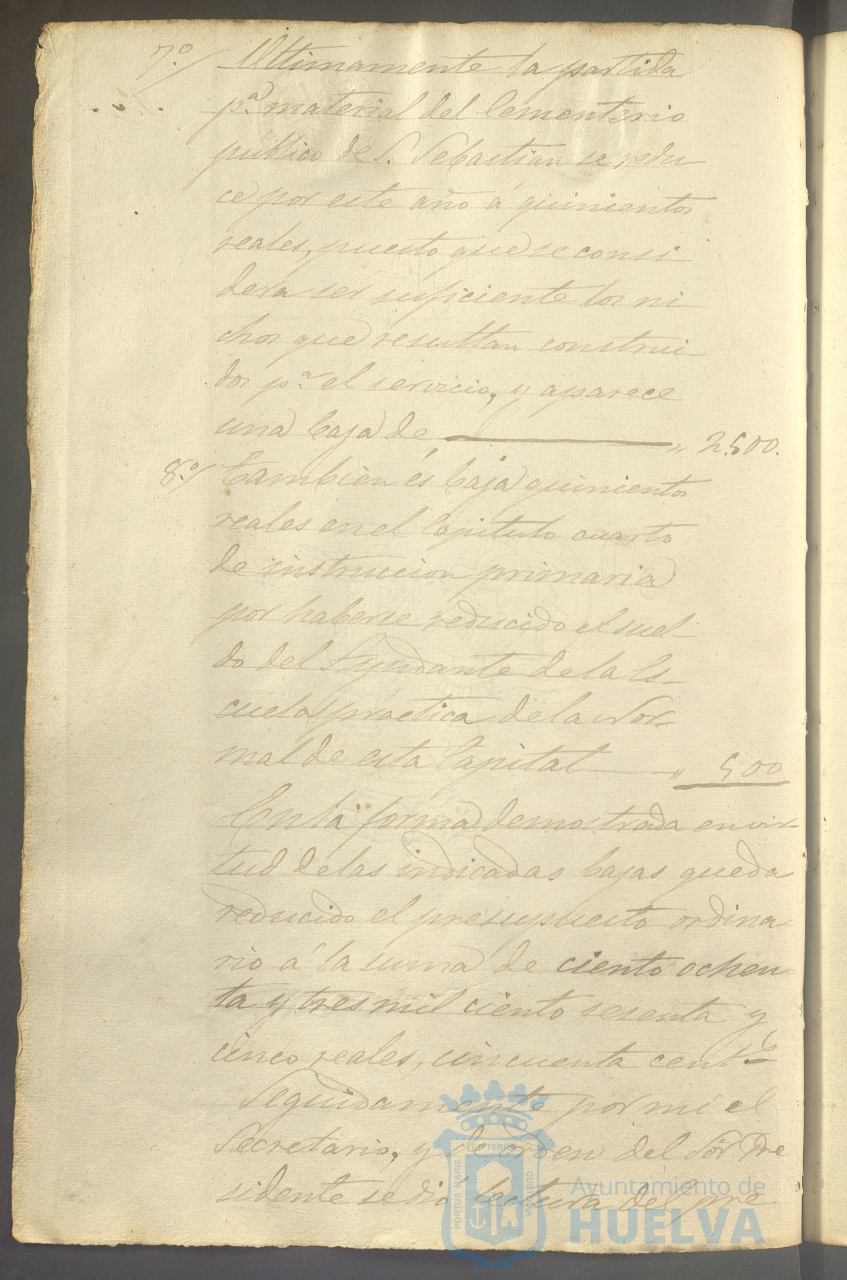 7.º/ Ultimamente la partida
p.ª material del Cementerio
público de S. Sebastian se redu
ce por este año á quinientos
reales, puesto que se consi
dera ser suficiente los ni
chos que resultan construi
dos p.ª el servicio, y aparece
una baja de " 2.500.
8.º/ Tambien és baja quinientos
reales en el Capitulo cuarto
de instruccion primaria
por haberse reducido el suel-
do del Ayudante de la Es-
cuela práctica de la Nor-
mal de esta Capital " 500
En la forma demostrada en vir-
tud de las indicadas bajas queda
reducido el presupuesto ordina
rio á la suma de ciento ochen
ta y tres mil ciento sesenta y
cinco reales, cincuenta cent.s
Seguidamente por mi el
Secretario, y de orden del Sõr Pre
sidente se dió lectura del pre
PORTUS MARIS
ET TERRE
CUSTODIA
Ayuntamiento de
HUELVA